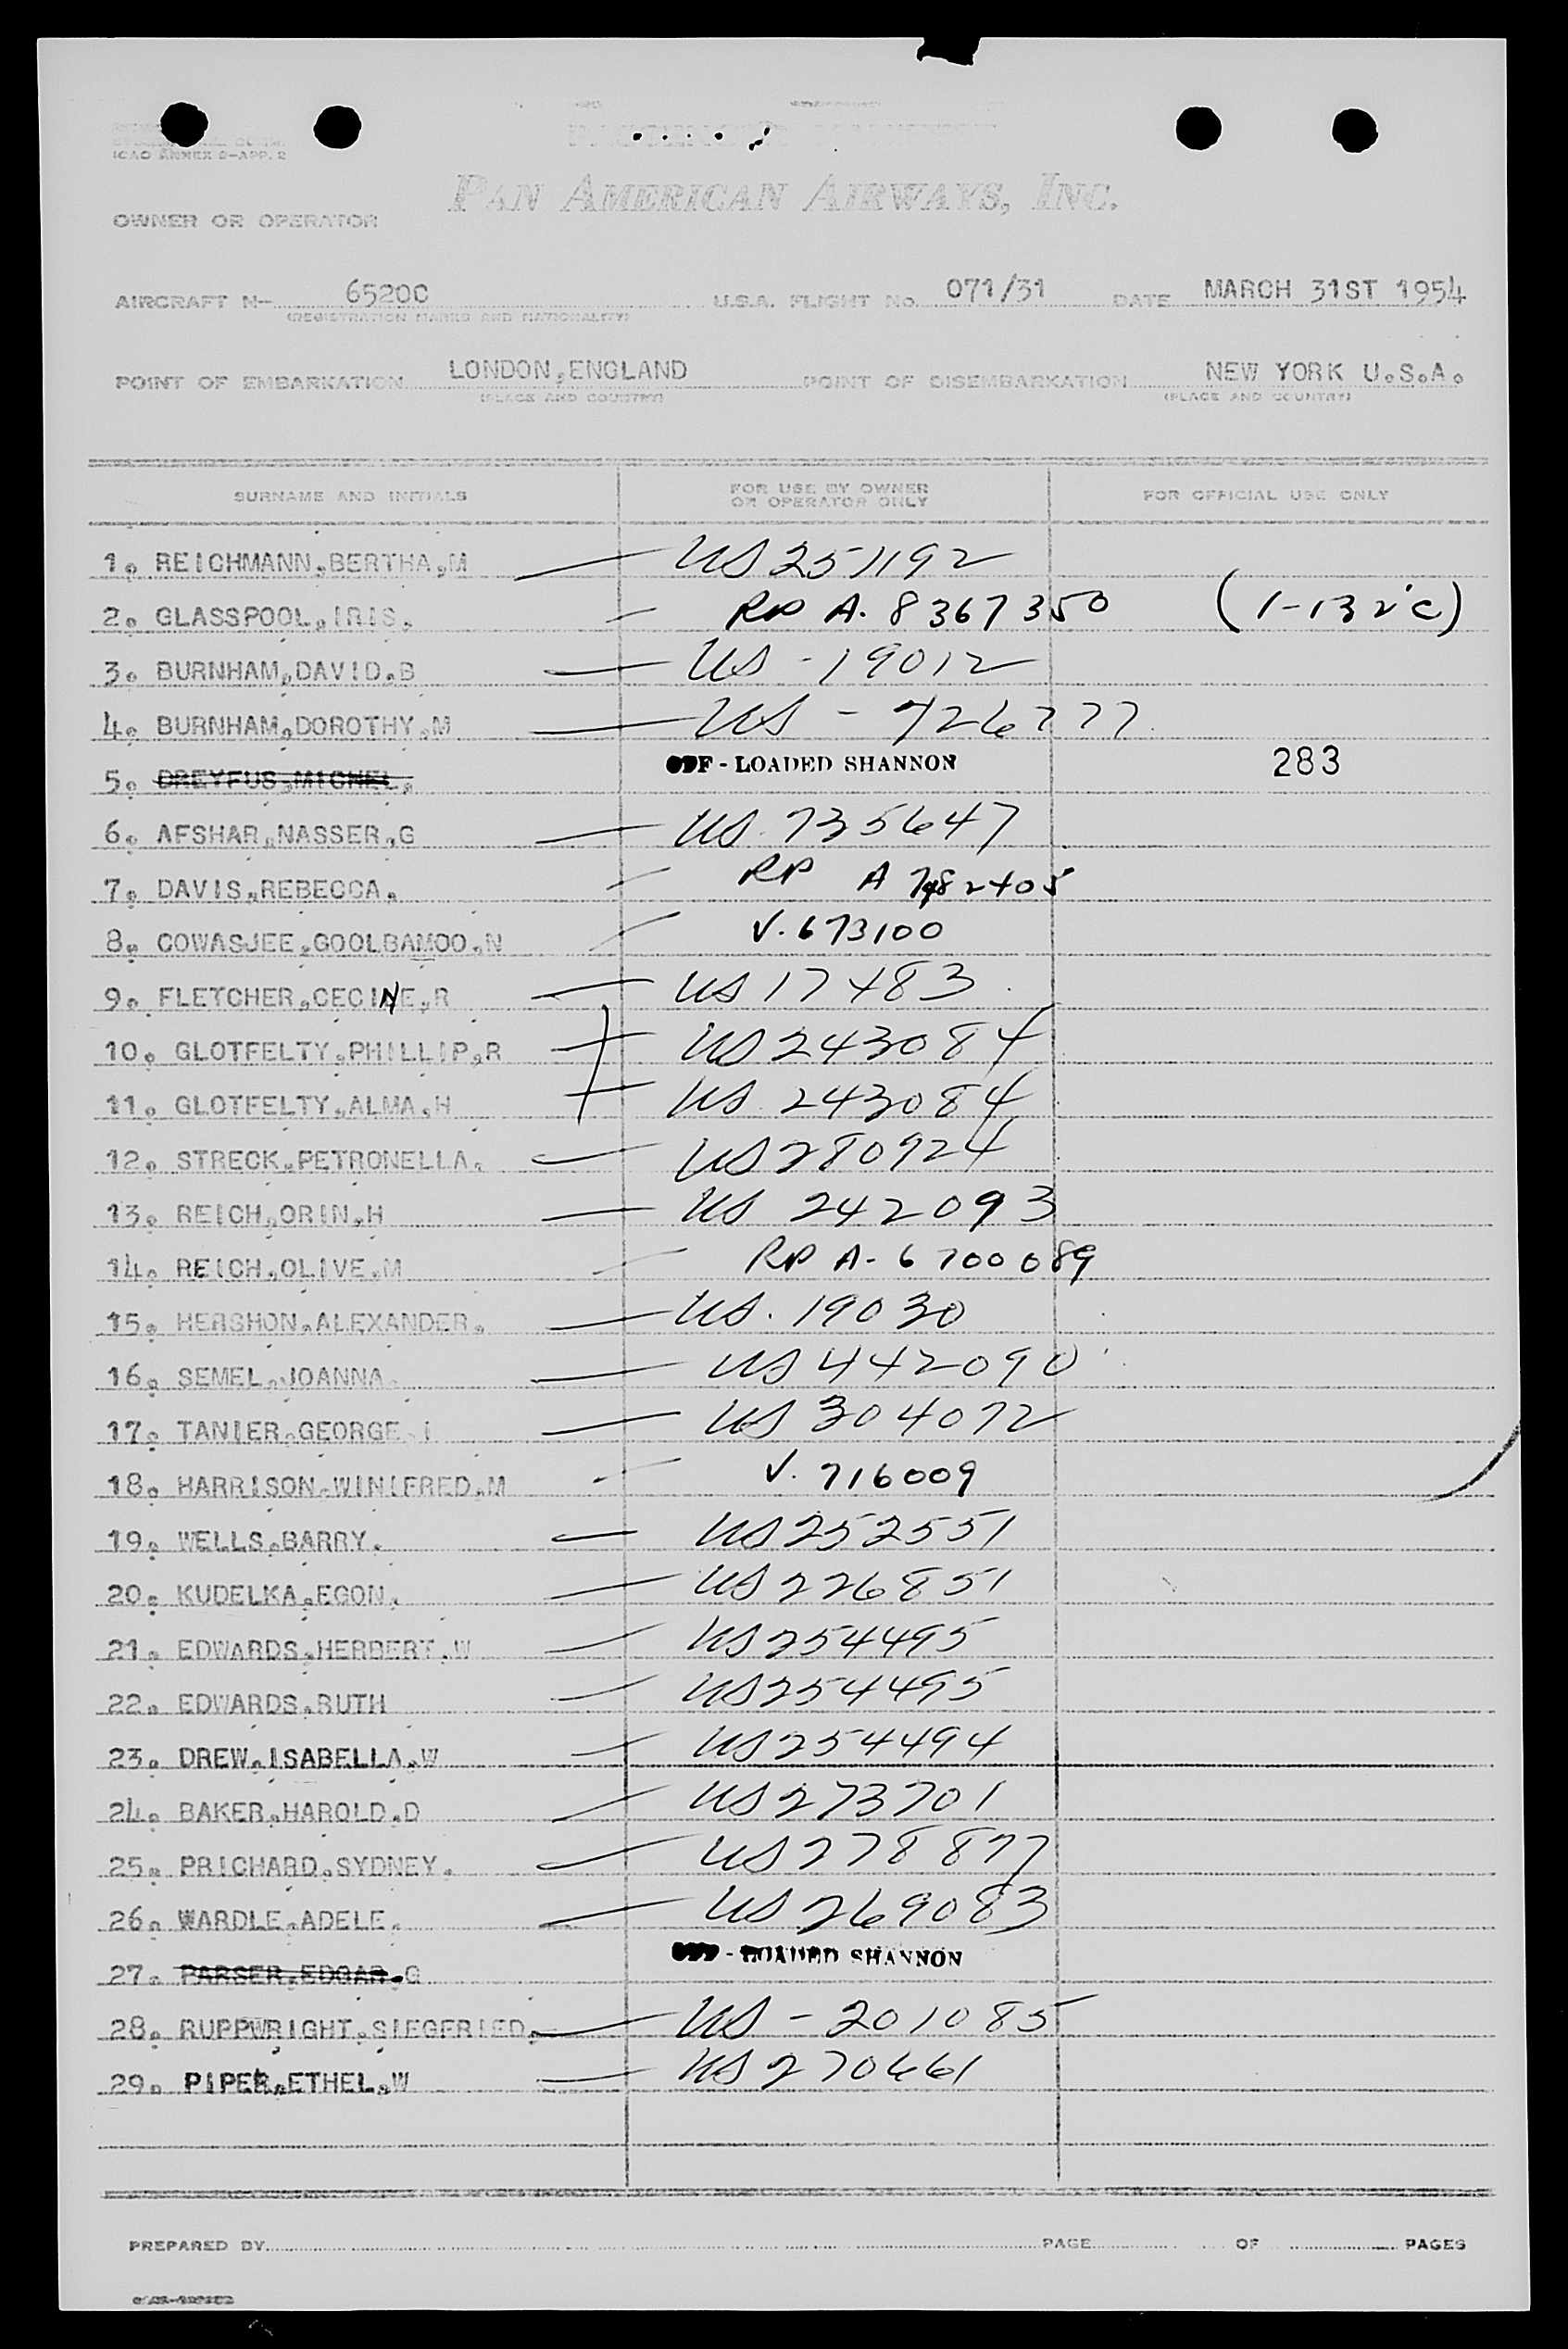 ICAO ANNEX 9-APP. 2
PAN AMERICAN AIRWAYS, INC.
OWNER OR OPERATOR
AIRCRAFT N- 6520C U.S.A. FLIGHT No. 071/31 DATE MARCH 31ST 1954
(REGISTRATION MARKS AND NATIONALITY)
POINT OF EMBARKATION LONDON,ENGLAND POINT OF DISEMBARKATION NEW YORK U.S.A.
(PLACE AND COUNTRY) (PLACE AND COUNTRY)
SURNAME AND INITIALS FOR USE BY OWNER OR OPERATOR ONLY FOR OFFICIAL USE ONLY
1. REICHMANN,BERTHA,M — US 251192
2. GLASSPOOL,IRIS. — RP A. 8367350 (1-132'c)
3. BURNHAM,DAVID.B — US - 19012
4. BURNHAM,DOROTHY.M — US - 726777
5. DREYFUS,MICHEL. OFF - LOADED SHANNON 283
6. AFSHAR,NASSER,G — US. 735647
7. DAVIS,REBECCA. — RP A 7982405
8. COWASJEE,GOOLBAMOO.N — V. 673100
9. FLETCHER,CECINE,R — US 17483
10. GLOTFELTY,PHILLIP,R — US 243084
11. GLOTFELTY,ALMA.H — US 243084
12. STRECK,PETRONELLA. — US 280924
13. REICH,ORIN,H — US 242093
14. REICH,OLIVE.M — RP A- 6700089
15. HERSHON,ALEXANDER. — US. 19030
16. SEMEL,JOANNA. — US 442090
17. TANIER,GEORGE.I — US 304072
18. HARRISON,WINIFRED.M — V. 716009
19. WELLS,BARRY. — US 252551
20. KUDELKA,EGON. — US 226851
21. EDWARDS,HERBERT.W — US 254495
22. EDWARDS,RUTH — US 254495
23. DREW,ISABELLA.W — US 254494
24. BAKER,HAROLD.D — US 273701
25. PRICHARD,SYDNEY. — US 278877
26. WARDLE,ADELE. — US 269083
27. PARSER,EDGAR.G OFF - LOADED SHANNON
28. RUPPWRIGHT,SIEGFRIED. — US - 201085
29. PIPER,ETHEL.W — US 270661
PREPARED BY PAGE OF PAGES